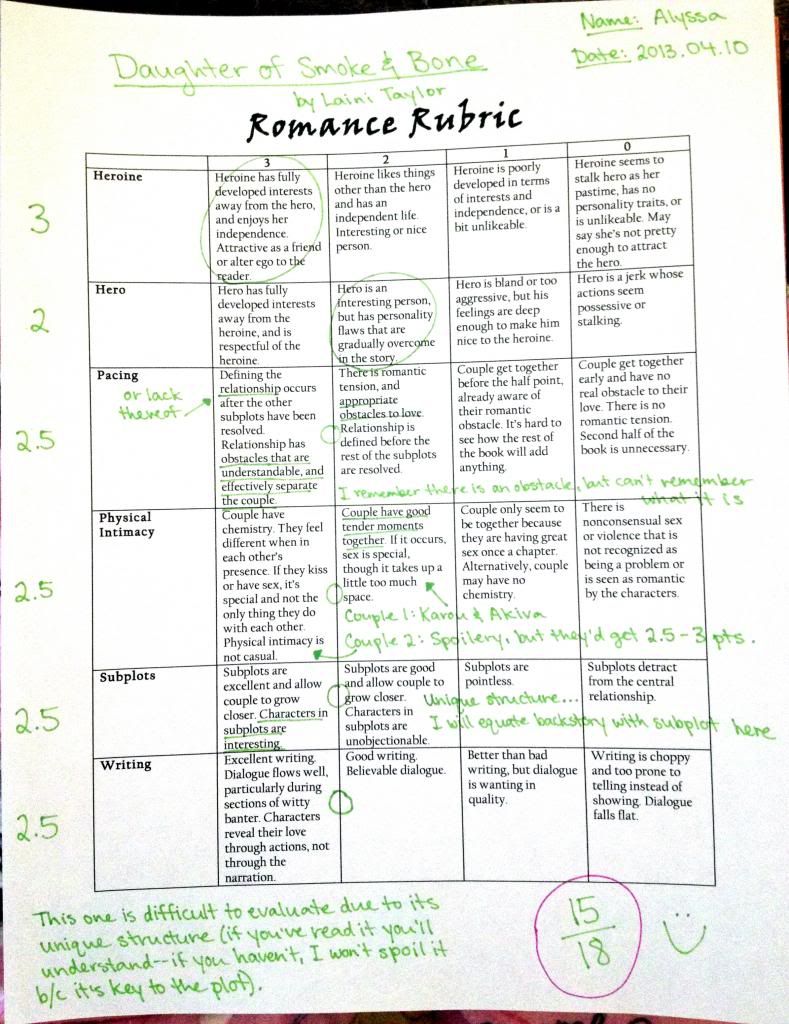 Name: Alyssa
Date: 2013.04.10
Daughter of Smoke & Bone
by Laini Taylor
Romance Rubric
3
2
1
0
3
Heroine
Heroine has fully
developed interests
away from the hero,
and enjoys her
independence.
Attractive as a friend
or alter ego to the
reader.
Heroine likes things
other than the hero
and has an
independent life.
Interesting or nice
person.
Heroine is poorly
developed in terms
of interests and
independence, or is a
bit unlikeable.
Heroine seems to
stalk hero as her
pastime, has no
personality traits, or
is unlikeable. May
say she's not pretty
enough to attract
the hero.
2
Hero
Hero has fully
developed interests
away from the
heroine, and is
respectful of the
heroine.
Hero is an
interesting person,
but has personality
flaws that are
gradually overcome
in the story.
Hero is bland or too
aggressive, but his
feelings are deep
enough to make him
nice to the heroine.
Hero is a jerk whose
actions seem
possessive or
stalking.
2.5
Pacing
or lack
thereof
Defining the
relationship occurs
after the other
subplots have been
resolved.
Relationship has
obstacles that are
understandable, and
effectively separate
the couple.
There is romantic
tension, and
appropriate
obstacles to love.
Relationship is
defined before the
rest of the subplots
are resolved.
Couple get together
before the half point,
already aware of
their romantic
obstacle. It's hard to
see how the rest of
the book will add
anything.
Couple get together
early and have no
real obstacle to their
love. There is no
romantic tension.
Second half of the
book is unnecessary.
I remember there is an obstacle, but can't remember
what it is
2.5
Physical
Intimacy
Couple have
chemistry. They feel
different when in
each other's
presence. If they kiss
or have sex, it's
special and not the
only thing they do
with each other.
Physical intimacy is
not casual.
Couple have good
tender moments
together. If it occurs,
sex is special,
though it takes up a
little too much
space.
Couple only seem to
be together because
they are having great
sex once a chapter.
Alternatively, couple
may have no
chemistry.
There is
nonconsensual sex
or violence that is
not recognized as
being a problem or
is seen as romantic
by the characters.
Couple 1: Karou & Akiva
Couple 2: Spoilery, but they'd get 2.5-3 pts.
2.5
Subplots
Subplots are
excellent and allow
couple to grow
closer. Characters in
subplots are
interesting.
Subplots are good
and allow couple to
grow closer.
Characters in
subplots are
unobjectionable.
Subplots are
pointless.
Subplots detract
from the central
relationship.
Unique structure...
I will equate backstory with subplot here
2.5
Writing
Excellent writing.
Dialogue flows well,
particularly during
sections of witty
banter. Characters
reveal their love
through actions, not
through the
narration.
Good writing.
Believable dialogue.
Better than bad
writing, but dialogue
is wanting in
quality.
Writing is choppy
and too prone to
telling instead of
showing. Dialogue
falls flat.
This one is difficult to evaluate due to its
unique structure (if you've read it you'll
understand--if you haven't, I won't spoil it
b/c it's key to the plot).
15
18